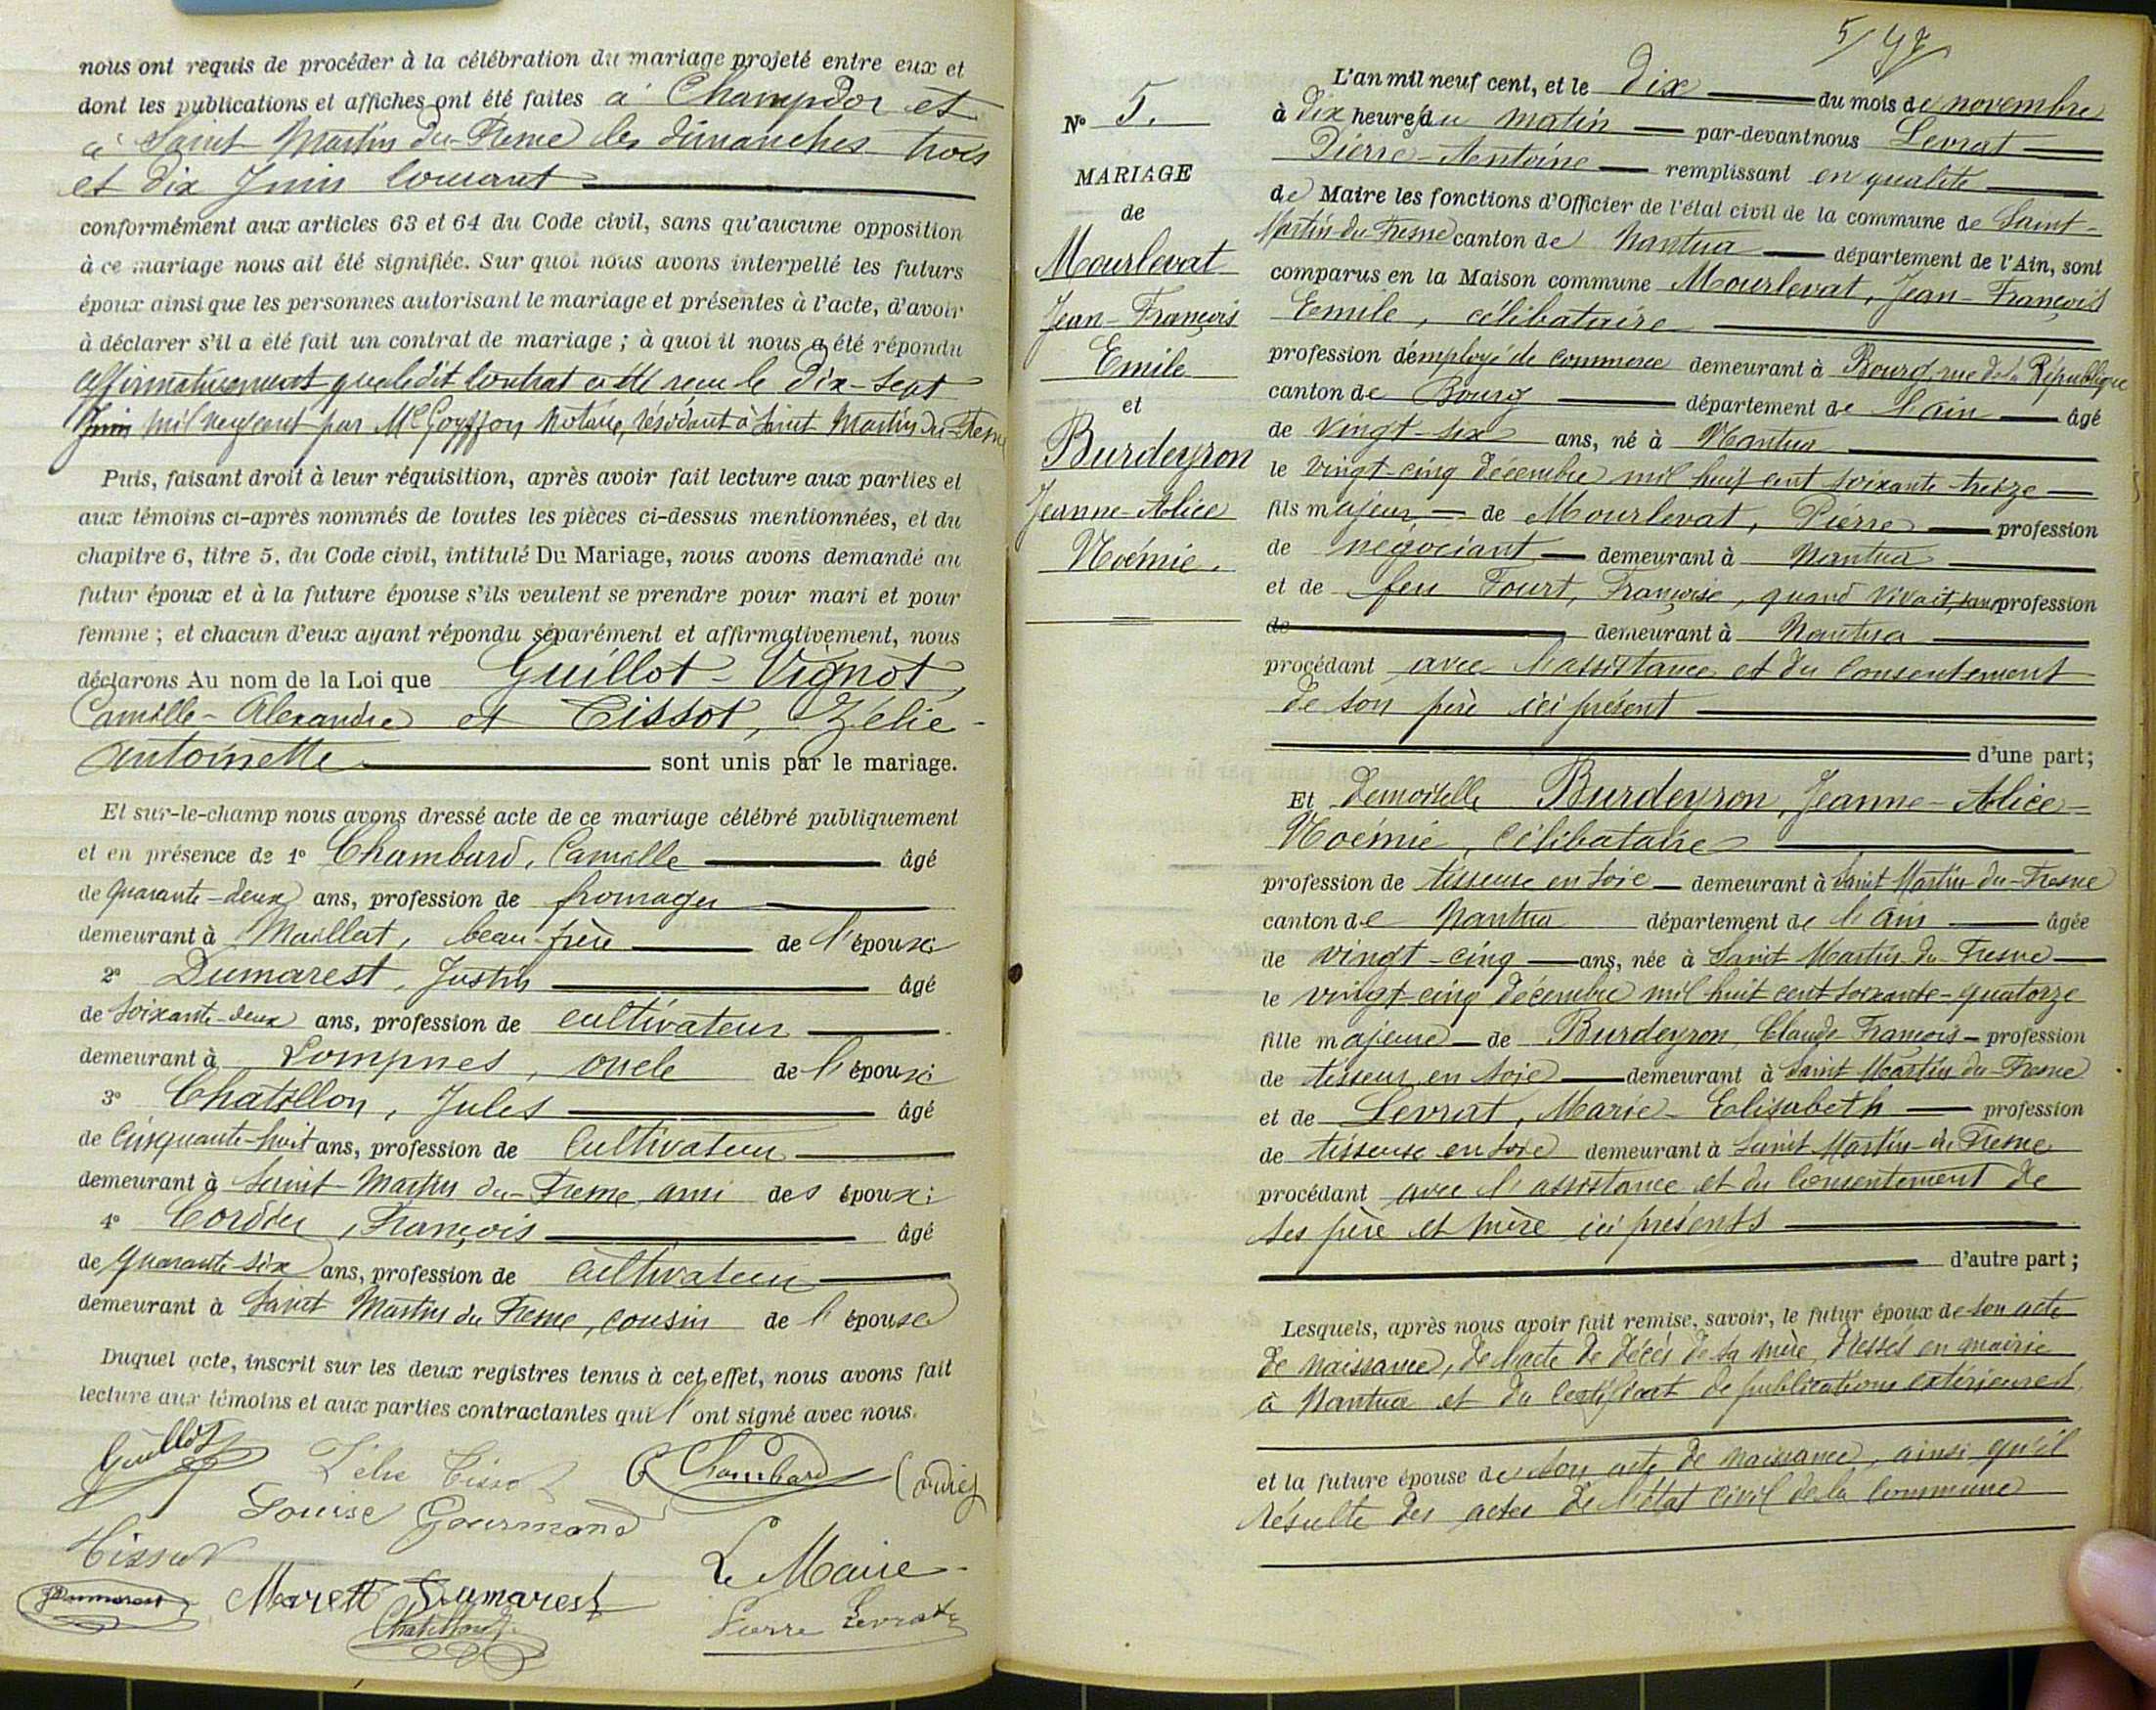 nous ont requis de procéder à la célébration du mariage projeté entre eux et
dont les publications et affiches ont été faites à Champdor et
à Saint Martin du-Fresne les dimanches trois
et dix Juin courant
conformément aux articles 63 et 64 du Code civil, sans qu'aucune opposition
à ce mariage nous ait été signifiée. Sur quoi nous avons interpellé les futurs
époux ainsi que les personnes autorisant le mariage et présentes à l'acte, d'avoir
à déclarer s'il a été fait un contrat de mariage ; à quoi il nous a été répondu
affirmativement que ledit contrat a été reçu le dix-sept
Juin mil neuf cent par Me Goyffon Notaire, résidant à Saint Martin du-Fresne
Puis, faisant droit à leur réquisition, après avoir fait lecture aux parties et
aux témoins ci-après nommés de toutes les pièces ci-dessus mentionnées, et du
chapitre 6, titre 5, du Code civil, intitulé Du Mariage, nous avons demandé au
futur époux et à la future épouse s'ils veulent se prendre pour mari et pour
femme ; et chacun d'eux ayant répondu séparément et affirmativement, nous
déclarons Au nom de la Loi que Guillot-Vignot,
Camille-Alexandre et Tissot, Zélie-
Antoinette sont unis par le mariage.
Et sur-le-champ nous avons dressé acte de ce mariage célébré publiquement
et en présence de 1° Chambard, Camille âgé
de quarante-deux ans, profession de fromager
demeurant à Maillat, beau-frère de l'épouse;
2° Dumarest, Justin âgé
de soixante-deux ans, profession de cultivateur
demeurant à Lompnes, oncle de l'épouse;
3° Chatillon, Jules âgé
de cinquante-huit ans, profession de cultivateur
demeurant à Saint-Martin du-Fresne, ami des époux;
4° Cordier, François âgé
de quarante-six ans, profession de cultivateur
demeurant à Saint Martin du Fresne, cousin de l'épouse
Duquel acte, inscrit sur les deux registres tenus à cet effet, nous avons fait
lecture aux témoins et aux parties contractantes qui l'ont signé avec nous.
Guillot Zélie Tissot C Chambard Cordier
Louise Gourmand
Tissot Le Maire
JDumarest Marett Dumarest
Chatillon J. Pierre Levrat
5/47
N° 5.
MARIAGE
de
Mourlevat
Jean-François
Emile
et
Burdeyron
Jeanne-Alice
Noémie.
L'an mil neuf cent, et le dix du mois de novembre
à dix heures du matin par-devant nous Levrat
Pierre-Antoine remplissant en qualité
de Maire les fonctions d'Officier de l'état civil de la commune de Saint-
Martin-du Fresne canton de Nantua département de l'Ain, sont
comparus en la Maison commune Mourlevat, Jean-François
Emile, célibataire
profession d'employé de commerce demeurant à Bourg, rue de la République
canton de Bourg département de l'Ain âgé
de vingt-six ans, né à Nantua
le vingt-cinq décembre mil huit cent soixante-treize
fils majeur de Mourlevat, Pierre profession
de négociant demeurant à Nantua
et de feu Fourt, Françoise, quand vivait, sans profession
de demeurant à Nantua
procédant avec l'assistance et du consentement
de son père ici présent
d'une part;
Et Demoiselle Burdeyron, Jeanne-Alice-
Noémie, célibataire
profession de tisseuse en soie demeurant à Saint Martin-du-Fresne
canton de Nantua département de l'Ain âgée
de vingt-cinq ans, née à Saint Martin du-Fresne
le vingt-cinq décembre mil huit cent soixante-quatorze
fille majeure de Burdeyron, Claude François profession
de tisseur en soie demeurant à Saint Martin du-Fresne
et de Levrat, Marie-Elisabeth profession
de tisseuse en soie demeurant à Saint Martin-du Fresne
procédant avec l'assistance et du consentement de
ses père et mère ici présents
d'autre part;
Lesquels, après nous avoir fait remise, savoir, le futur époux de son acte
de naissance, de l'acte de décès de sa mère, dressés en mairie
à Nantua et du certificat de publications extérieures
et la future épouse de son acte de naissance, ainsi qu'il
résulte des actes de l'état civil de la commune